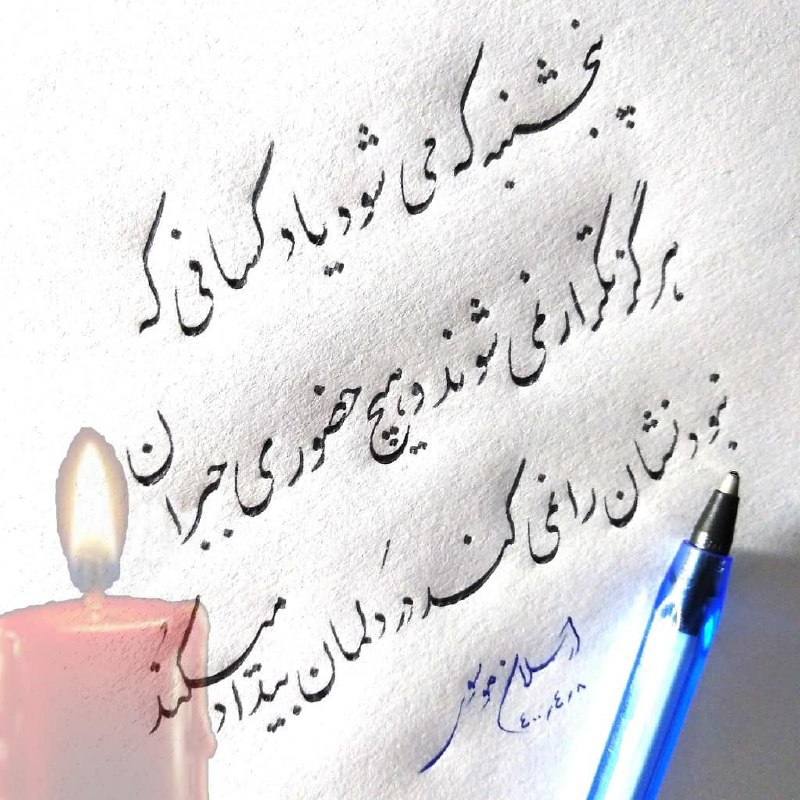 پنجشنبه که می شود یاد کسانی که
هرگز تکرار نمی شوند و هیچ حضوری جبران
نبودنشان را نمی کند در دلمان بیداد میکند
ارسلان موسوی
٤٠٠،٤،٨